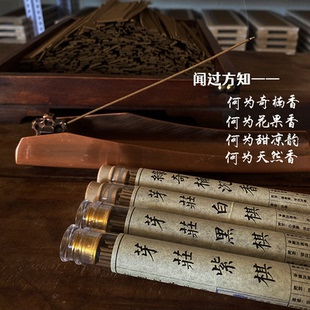 闻过方知——
何为奇楠香
何为花果香
何为甜凉韵
何为天然香
精奇楠沉香
芽莊白棋
芽莊黑棋
芽莊紫棋